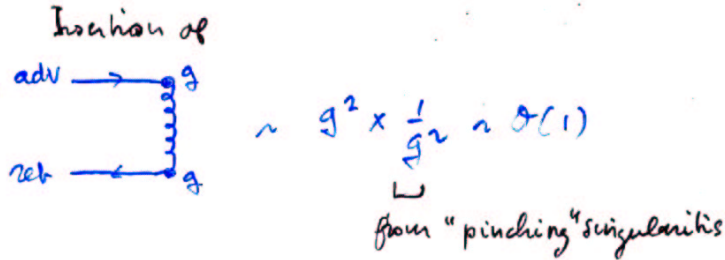 Insertion of
adv g
~ g² × 1/g² ~ O(1)
ret g
from "pinching" singularitis